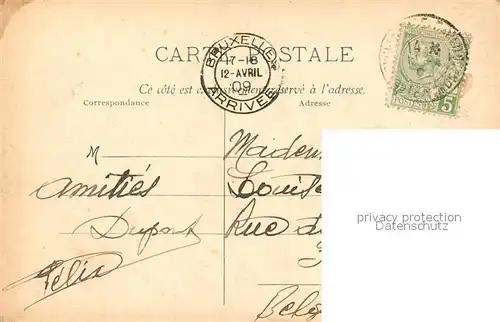 CARTE POSTALE
BRUXELLES
17-18
12-AVRIL
09
ARRIVEE
Ce côté est exclusivement réservé à l'adresse.
Correspondance
Adresse
5
M
amitiés
Dupont
Félix
Madem
Louise
Rue du
Belg
privacy protection
Datenschutz